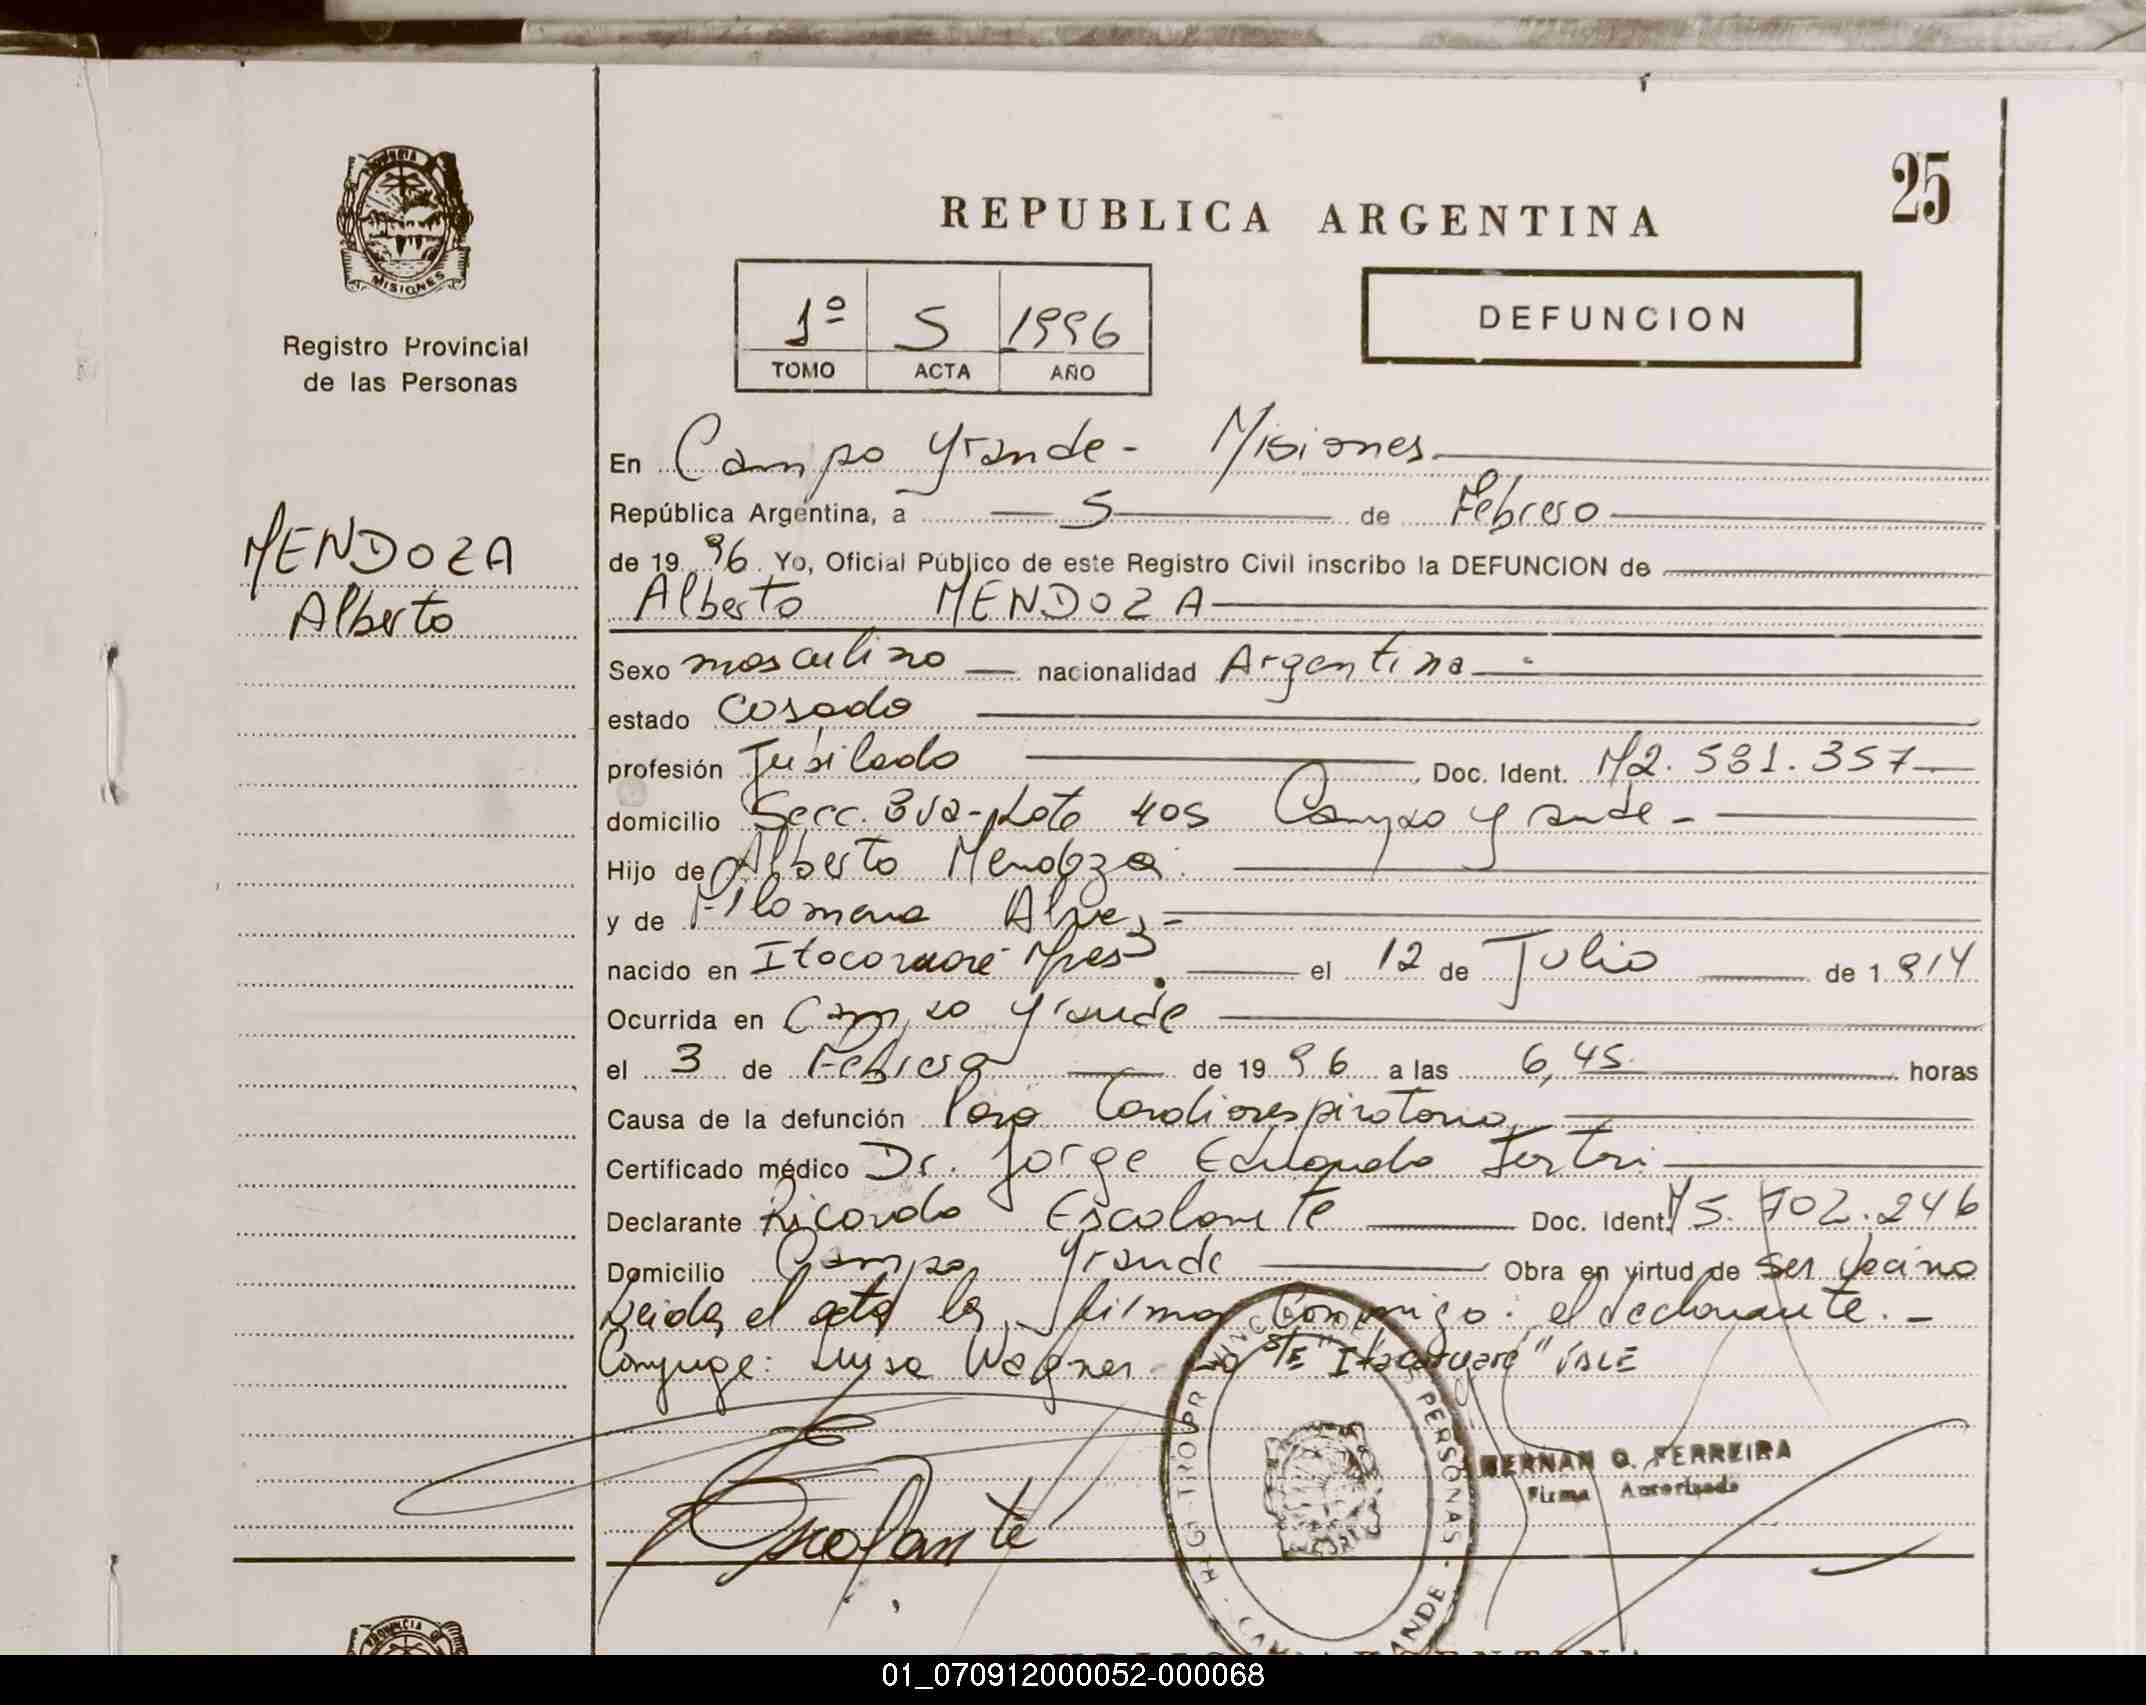 PROVINCIA
MISIONES
Registro Provincial
de las Personas
MENDOZA
Alberto
25
REPUBLICA ARGENTINA
1º 5 1996
TOMO ACTA AÑO
DEFUNCION
En Campo Grande - Misiones
República Argentina, a 5 de Febrero
de 19 96 Yo, Oficial Público de este Registro Civil inscribo la DEFUNCION de
Alberto MENDOZA
Sexo masculino nacionalidad Argentina
estado casado
profesión Jubilado Doc. Ident. M2.531.357
domicilio Secc. 3ra - Lote 405 Campo Grande -
Hijo de Alberto Mendoza
y de Filomena Alvez
nacido en Itacaruaré Mnes. el 12 de Julio de 1 914
Ocurrida en Campo Grande
el 3 de Febrero de 19 96 a las 6,45 horas
Causa de la defunción Paro Cardiorespiratorio
Certificado médico Dr. Jorge Eduardo
Declarante Ricardo Escalante Doc. Ident. M 5.702.246
Domicilio Campo Grande Obra en virtud de ser vecino
Leida el acta la firma conmigo: el declarante. -
Conyuge: Luisa Wagner - S/E "Itacaruaré" VALE
Escalante
REG. TRO PROVINCIAL DE LAS PERSONAS
HERNAN Q. FERREIRA
Firma Autorizada
01_070912000052-000068